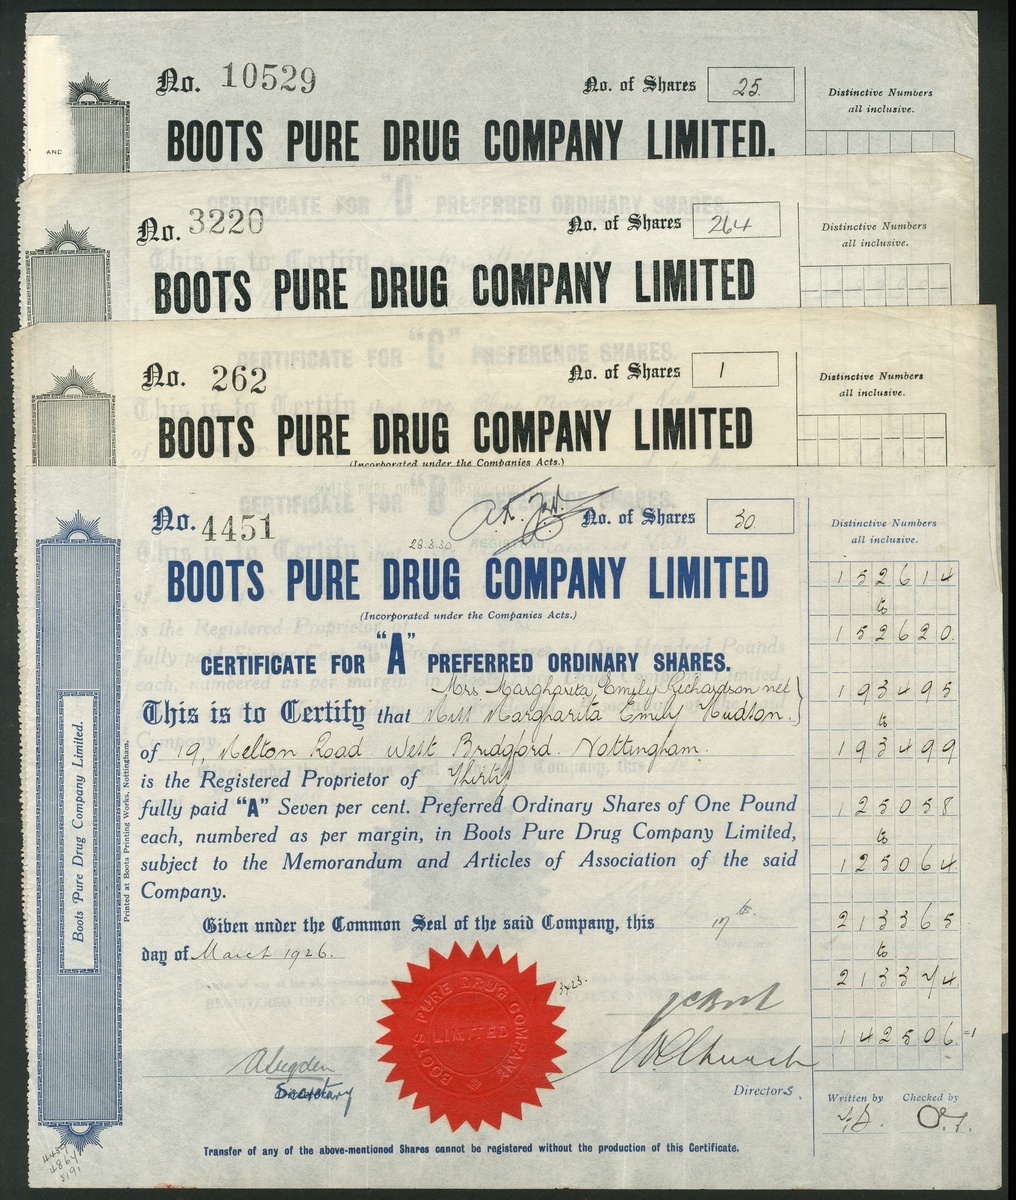 No. 10529 No. of Shares 25.
Distinctive Numbers
all inclusive.
AND
BOOTS PURE DRUG COMPANY LIMITED.
CERTIFICATE FOR "D" PREFERRED ORDINARY SHARES.
No. 3220 No. of Shares 264
Distinctive Numbers
all inclusive.
This is to Certify
BOOTS PURE DRUG COMPANY LIMITED
CERTIFICATE FOR "C" PREFERENCE SHARES.
No. 262 No. of Shares 1
Distinctive Numbers
all inclusive.
This is to Certify that
BOOTS PURE DRUG COMPANY LIMITED
(Incorporated under the Companies Acts.)
CERTIFICATE FOR "B" PREFERENCE SHARES.
No. 4451 No. of Shares 30.
28.3.30
Distinctive Numbers
all inclusive.
BOOTS PURE DRUG COMPANY LIMITED
(Incorporated under the Companies Acts.)
CERTIFICATE FOR "A" PREFERRED ORDINARY SHARES.
Mrs. Margharita Emily Richardson née
This is to Certify that Miss Margharita Emily Hudson.
of 19, Melton Road West Bridgford. Nottingham.
is the Registered Proprietor of Thirty
fully paid "A" Seven per cent. Preferred Ordinary Shares of One Pound
each, numbered as per margin, in Boots Pure Drug Company Limited,
subject to the Memorandum and Articles of Association of the said
Company.
Given under the Common Seal of the said Company, this 17th.
day of March 1926.
152614
to
152620.
193495
to
193499
125058
to
125064.
213365
to
213374
142506. =1
Boots Pure Drug Company Limited.
Printed at Boots Printing Works, Nottingham.
BOOTS PURE DRUG COMPANY
LIMITED
Secretary
Directors.
Written by Checked by
Transfer of any of the above-mentioned Shares cannot be registered without the production of this Certificate.